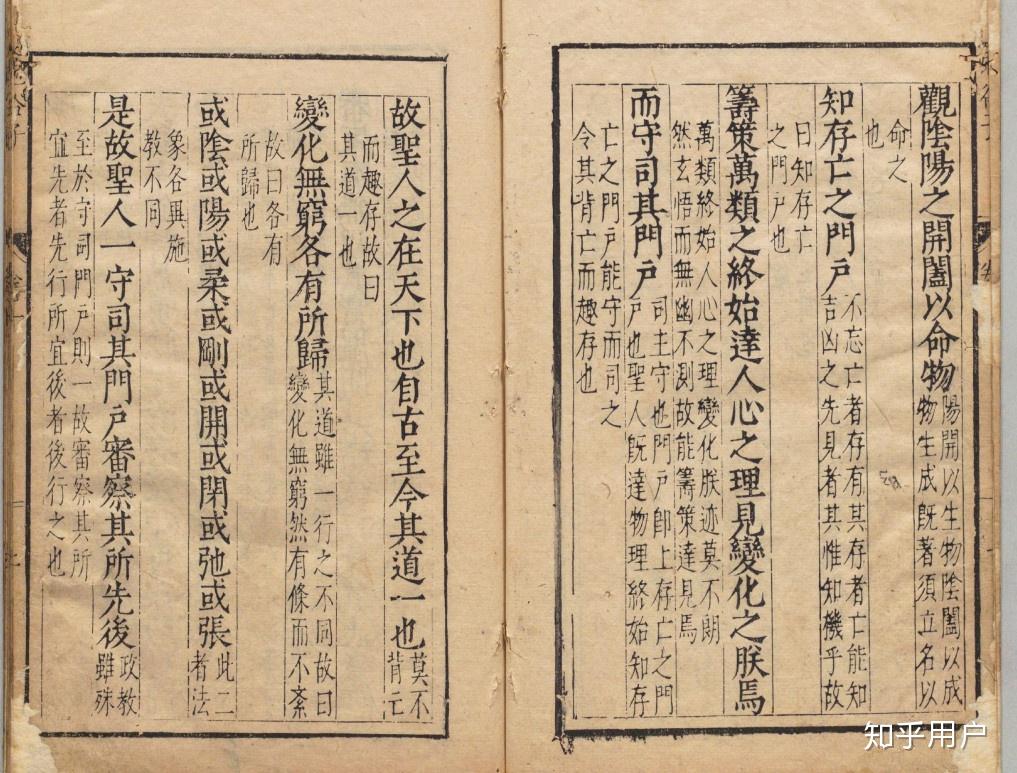 觀陰陽之開闔以命物
陽開以生物陰闔以成
物生成既著須立名以
命之
也
知存亡之門戶
不忘亡者存有其存者亡能知
吉凶之先見者其惟知機乎故
曰知存亡
之門戶也
籌策萬類之終始達人心之理見變化之朕焉
萬類終始人心之理變化朕迹莫不朗
然玄悟而無幽不測故能籌策達見焉
而守司其門戶
司主守也門戶即上存亡之門
戶也聖人既達物理終始知存
亡之門戶能守而司之
令其背亡而趣存也
故聖人之在天下也自古至今其道一也
莫不
背亡
而趣存故曰
其道一也
變化無窮各有所歸
其道雖一行之不同故曰
變化無窮然有條而不紊
故曰各有
所歸也
或陰或陽或柔或剛或開或閉或弛或張
此二
者法
象各異施
教不同
是故聖人一守司其門戶審察其所先後
政教
雖殊
至於守司門戶則一故審察其所
宜先者先行所宜後者後行之也
知乎用户